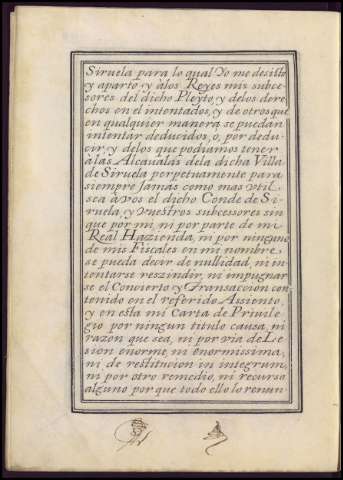 Siruela para lo qual Yo me desisto
y aparto, y a los Reyes mis subce-
sores del dicho Pleyto, y de los dere
chos en el intentados, y de otros que
en qualquier manera se puedan
intentar deducidos, o, por dedu-
cir, y de los que podiamos tener
a las Alcavalas de la dicha Villa
de Siruela perpetuamente para
siempre jamas como mas vtil
sea a vos el dicho Conde de Si-
ruela, y vuestros subcessores sin
que por mi, ni por parte de mi
Real Hazienda, ni por ninguno
de mis Fiscales en mi nombre
se pueda decir de nullidad, ni in-
tentarse reszindir, ni impugnar
se el Concierto y Transaccion con
tenido en el referido Assiento,
y en esta mi Carta de Privile
gio por ningun titulo causa, ni
razon que sea, ni por via de Le
sion enorme, ni enormissima,
ni de restitucion in integrum,
ni por otro remedio, ni recurso
alguno por que todo ello lo renun